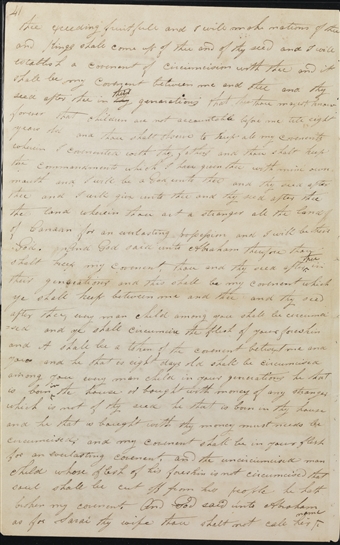 41
thee exceding fruitfull and I will make nations of thee
and Kings shall come up of thee and of thy seed and I will
establish a covenent of circumcision with thee and it
shall be my covenent between me and thee and thy
seed after thee in their generations that thou mayest know
forever that children are not accountable before me till eight
years old and thou shalt observe to keep all my covenents
wherein I covenented with thy fathers and thou shalt keep
the commandments which I have given thee with mine own
mouth and I will be a God unto thee and thy seed after
thee and I will give unto thee and thy seed after thee
the land wherein thou art a stranger all the land
of Canaan for an everlasting possession and I will be their
God. and God said unto Abraham therefore thou
shalt keep my covenent thou and thy seed after thee in
their generations and this shall be my covenent which
ye shall keep between me and thee and thy seed
after thee every man child among you shall be circumcised
and ye shall circumcise the flesh of your foreskin
and it shall be a token of the covenent betwixt me and
you and he that is eight days old shall be circumcised
among you every man child in your generations he that
is born in the house or bought with money of any stranger
which is not of thy seed he that is born in thy house
and he that is bought with thy money must needs be
circumcised and my covenent shall be in your flesh
for an everlasting covenent and the uncircumcised man
child whose flesh of his foreskin is not circumcised that
soul shall be cut off from his people he hath
broken my covenent And God said unto Abraham
as for Sarai thy wife thou shalt not call her name